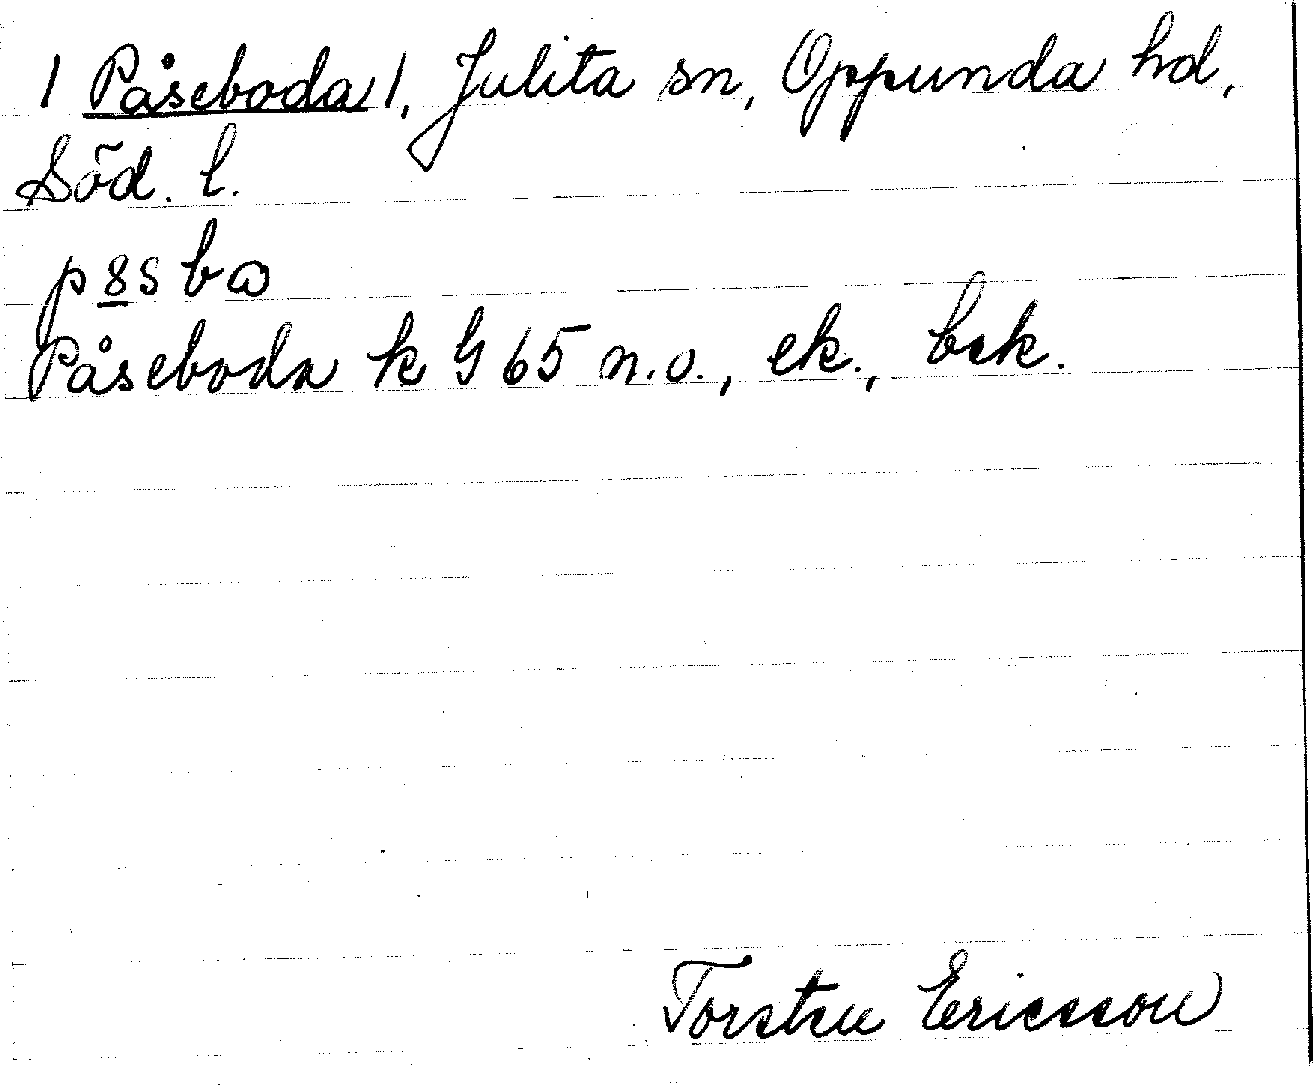 / Påseboda /, Julita sn, Oppunda hd,
Söd. l.
p8sba
Påseboda k G 65 n.o., ek., bek.
Torsten Ericsson